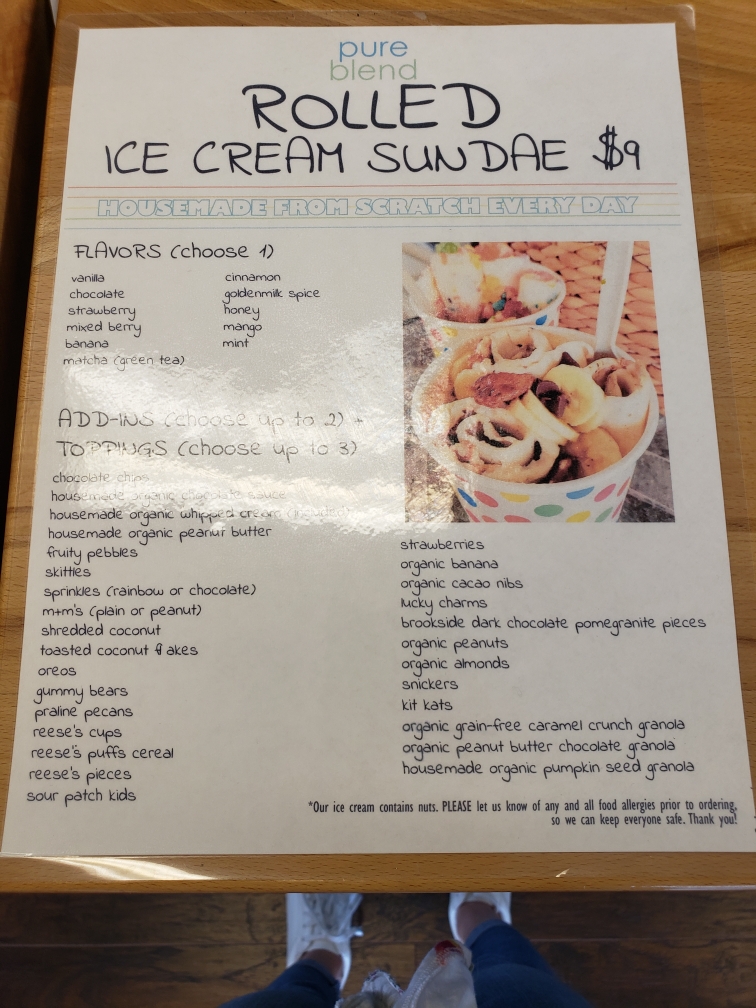 pure
blend
ROLLED
ICE CREAM SUNDAE $9
HOUSEMADE FROM SCRATCH EVERY DAY
FLAVORS (choose 1)
vanilla
chocolate
strawberry
mixed berry
banana
matcha (green tea)
cinnamon
goldenmilk spice
honey
mango
mint
ADD-INS (choose up to 2) +
TOPPINGS (choose up to 3)
chocolate chips
housemade organic chocolate sauce
housemade organic whipped cream
housemade organic peanut butter
fruity pebbles
skittles
sprinkles (rainbow or chocolate)
m+m's (plain or peanut)
shredded coconut
toasted coconut flakes
oreos
gummy bears
praline pecans
reese's cups
reese's puffs cereal
reese's pieces
sour patch kids
strawberries
organic banana
organic cacao nibs
lucky charms
brookside dark chocolate pomegranite pieces
organic peanuts
organic almonds
snickers
kit kats
organic grain-free caramel crunch granola
organic peanut butter chocolate granola
housemade organic pumpkin seed granola
*Our ice cream contains nuts. PLEASE let us know of any and all food allergies prior to ordering,
so we can keep everyone safe. Thank you!